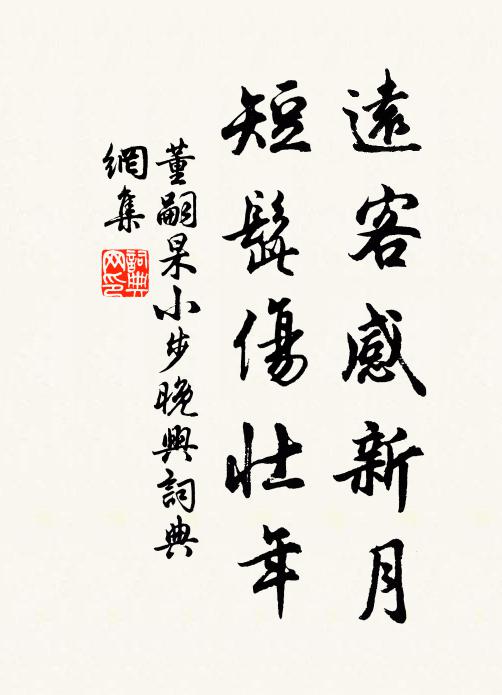 遠客感新月
短髭傷壯年
董嗣杲小步晚興詞典
網集
詞典
网印